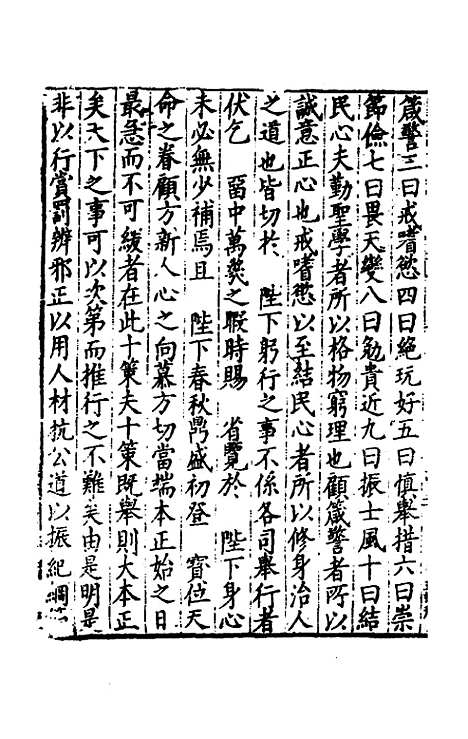 箴警三曰戒嗜慾四曰絕玩好五曰慎舉措六曰崇
節儉七曰畏天變八曰勉貴近九曰振士風十曰結
民心夫勤聖學者所以格物窮理也顧箴警者所以
誠意正心也戒嗜慾以至結民心者所以修身治人
之道也皆切於　陛下躬行之事不係各司舉行者
伏乞　留中萬幾之暇時賜　省覽於　陛下身心
未必無少補焉且　陛下春秋鼎盛初登　寶位天
命之眷顧方新人心之向慕方切當端本正始之日
最急而不可緩者在此十策夫十策既舉則大本正
矣天下之事可以次第而推行之不難矣由是明是
非以行賞罰辨邪正以用人材抗公道以振紀綱